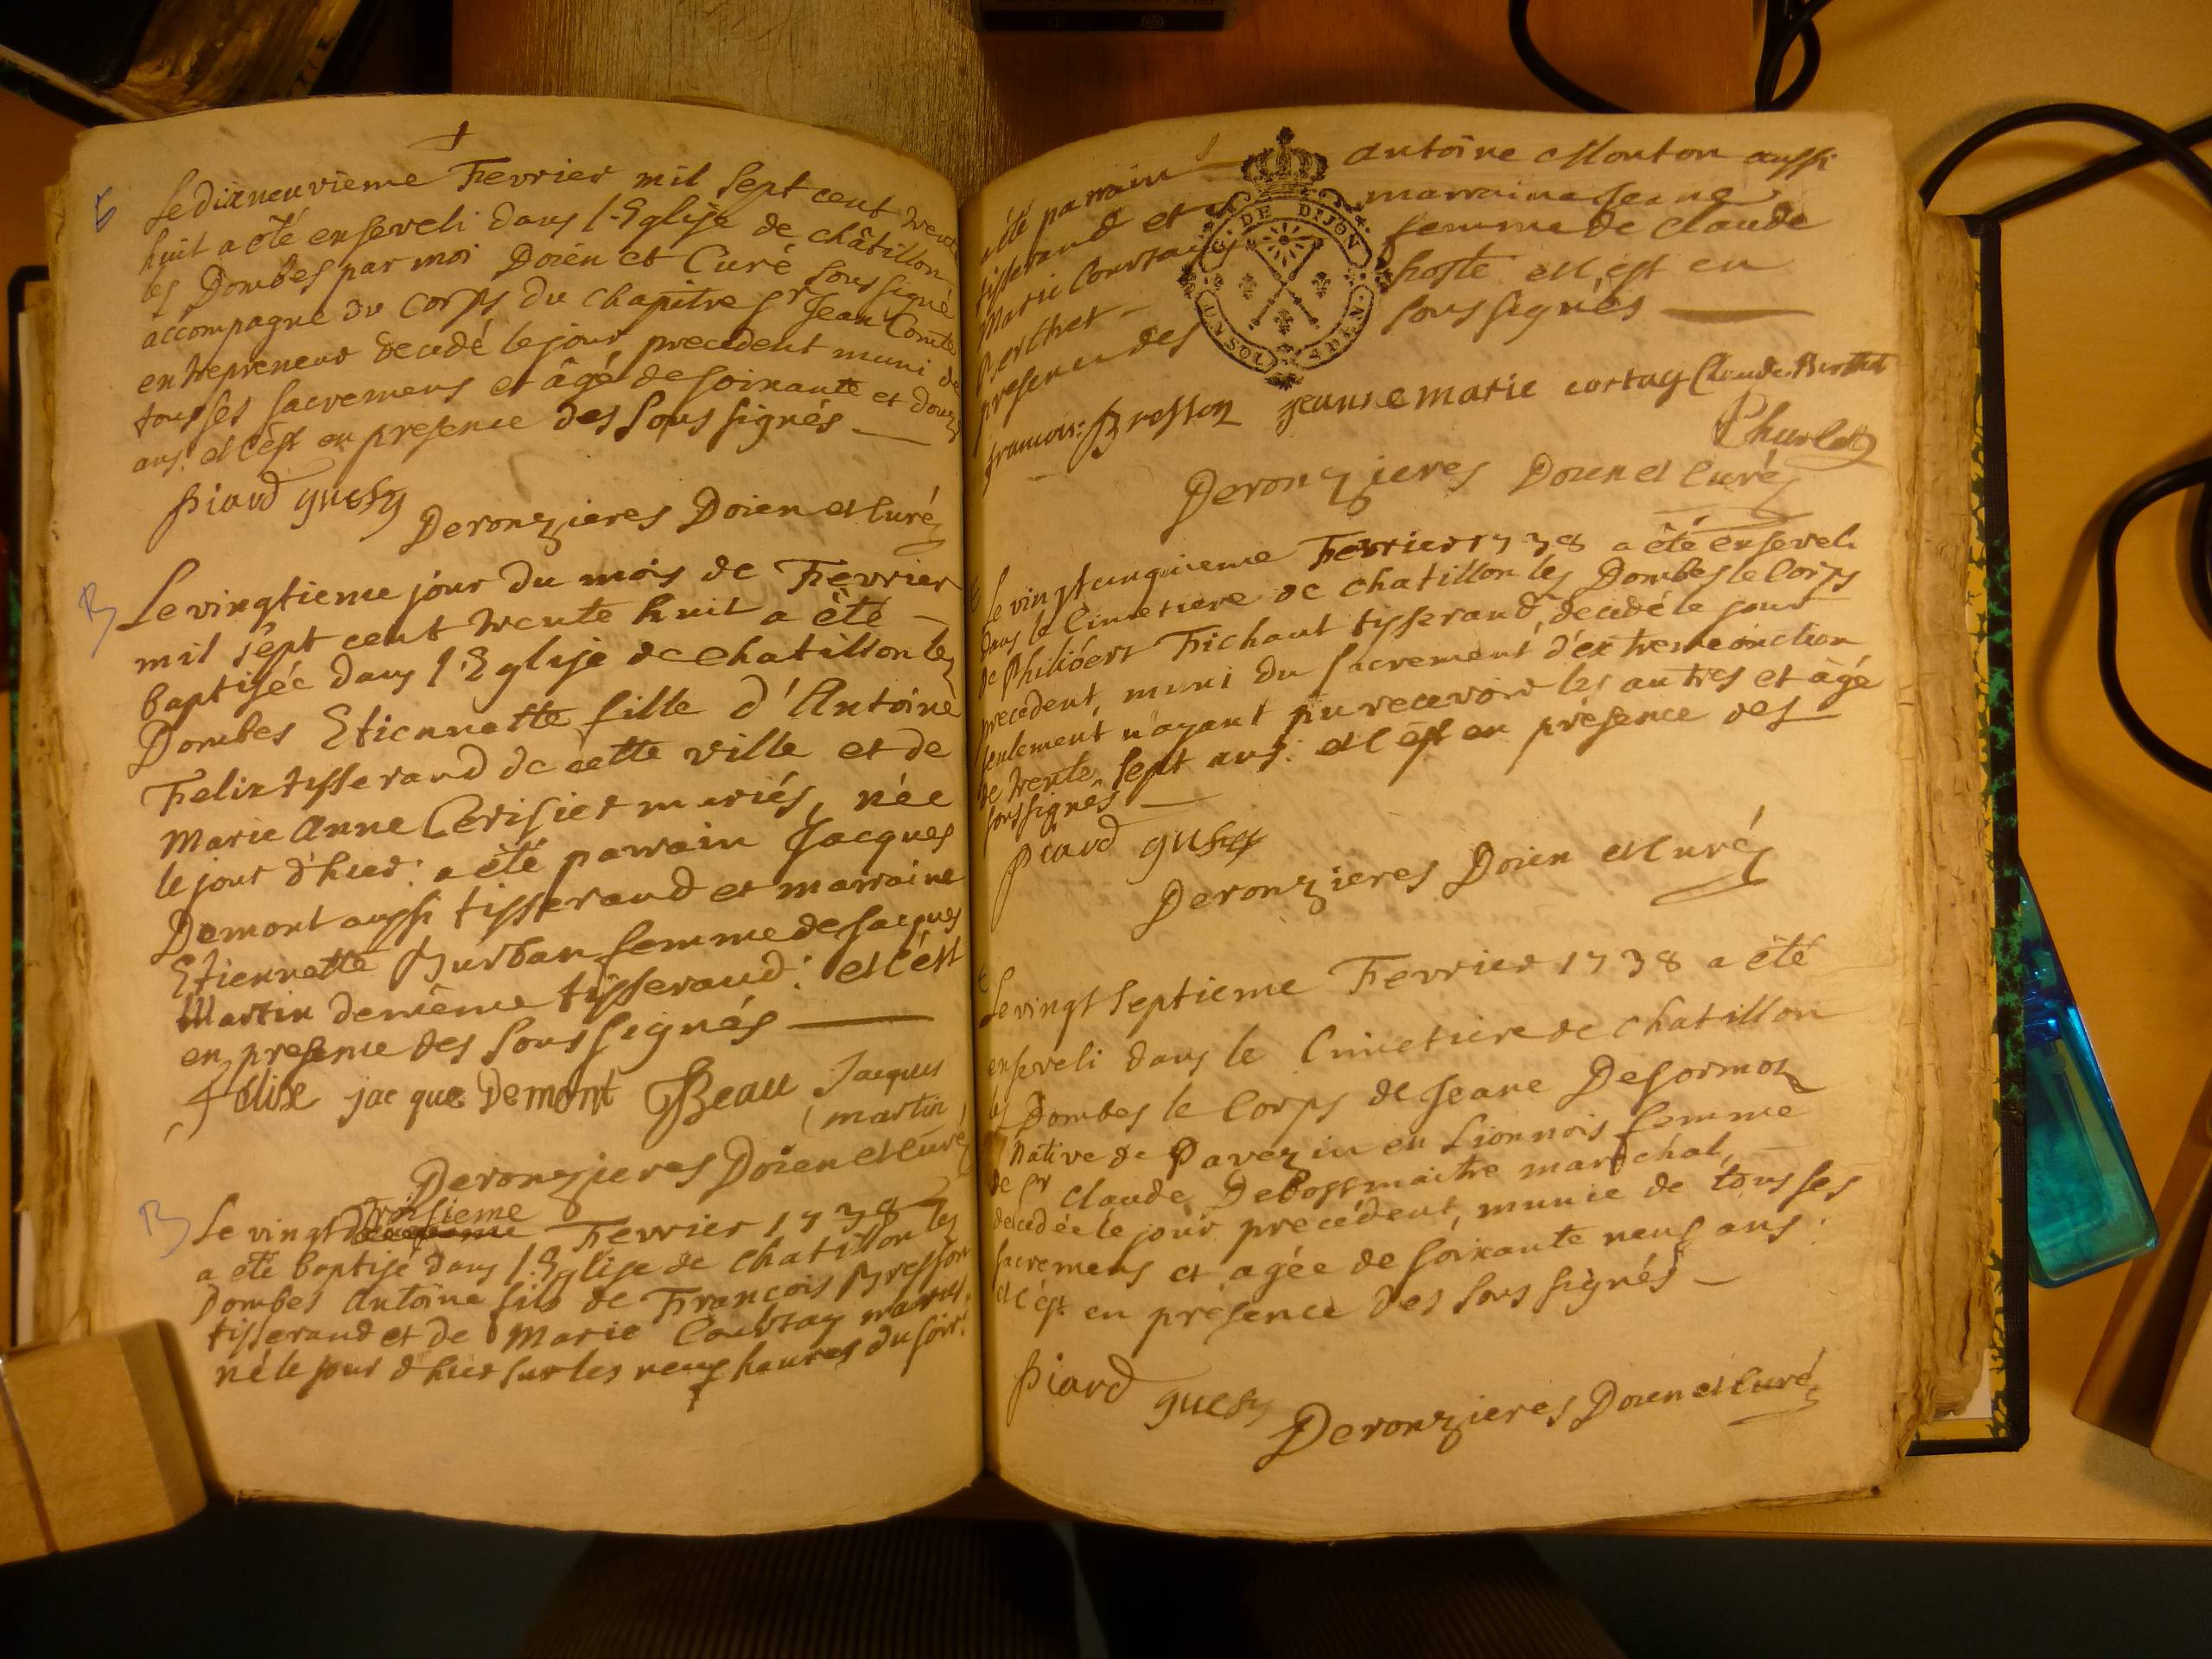 E
Le dix neuvieme Fevrier mil sept cent trente
huit a été enseveli dans l'Eglise de châtillon
les Dombes par moi Doien et Curé soussigné
accompagné du corps du chapitre Sr Jean Comte
entrepreneur decedé le jour precedent muni de
tous ses sacremens et âgé de soixante et douze
ans: et c'est en presence des soussignés
piard guesy
Deronzieres Doien et Curé
B
Le vingtieme jour du mois de Fevrier
mil sept cent trente huit a été
baptisée dans l'Eglise de chatillon les
Dombes Etiennette fille d'Antoine
Felix tisserand de cette ville et de
Marie Anne Cerisier mariés, née
le jour d'hier: a été parrain Jacques
Demont aussi tisserand et marraine
Etiennette Burban femme de Jacques
Martin demême tisserand: et c'est
en presence des soussignés
felix jacque Demont Beau Jacques
martin
Deronzieres Doien et Curé
B
troisieme
Le vingt Fevrier 1738
a été baptisé dans l'Eglise de chatillon les
Dombes Antoine fils de François Bresson
tisserand et de Marie Courtay mariés
né le jour d'hier sur les neuf heures du soir:
a été parrain antoine Monton aussi
tisserand et marraine Jeanne
Marie Courtay femme de claude
Berthet hoste et c'est en
presence des soussignés
G. DE DIJON
UN SOL 4 DEN.
francois: Bresson jeanne marie cortay Claude Berthet
Charles
Deronzieres Doien et Curé
E
Le vingt cinquieme Fevrier 1738 a été enseveli
dans le Cimetiere de chatillon les Dombes le Corps
de Philibert Frichaut tisserand, decedé le jour
precedent, muni du sacrement d'extremeonction
seulement n'ayant pu recevoir les autres et âgé
de trente sept ans: et c'est en présence des
soussignés
piard guesy
Deronzieres Doien et Curé
E
Le vingt septieme Fevrier 1738 a été
enseveli dans le Cimetiere de chatillon
les Dombes le Corps de Jeane Desormoz
Native de Pavezin en Lionnois femme
de Sr claude Deboss maitre marechal,
decedée le jour precédent, munie de tous ses
sacremens et agée de soixante neuf ans:
et c'est en présence des soussignés
piard guesy
Deronzieres Doien et Curé